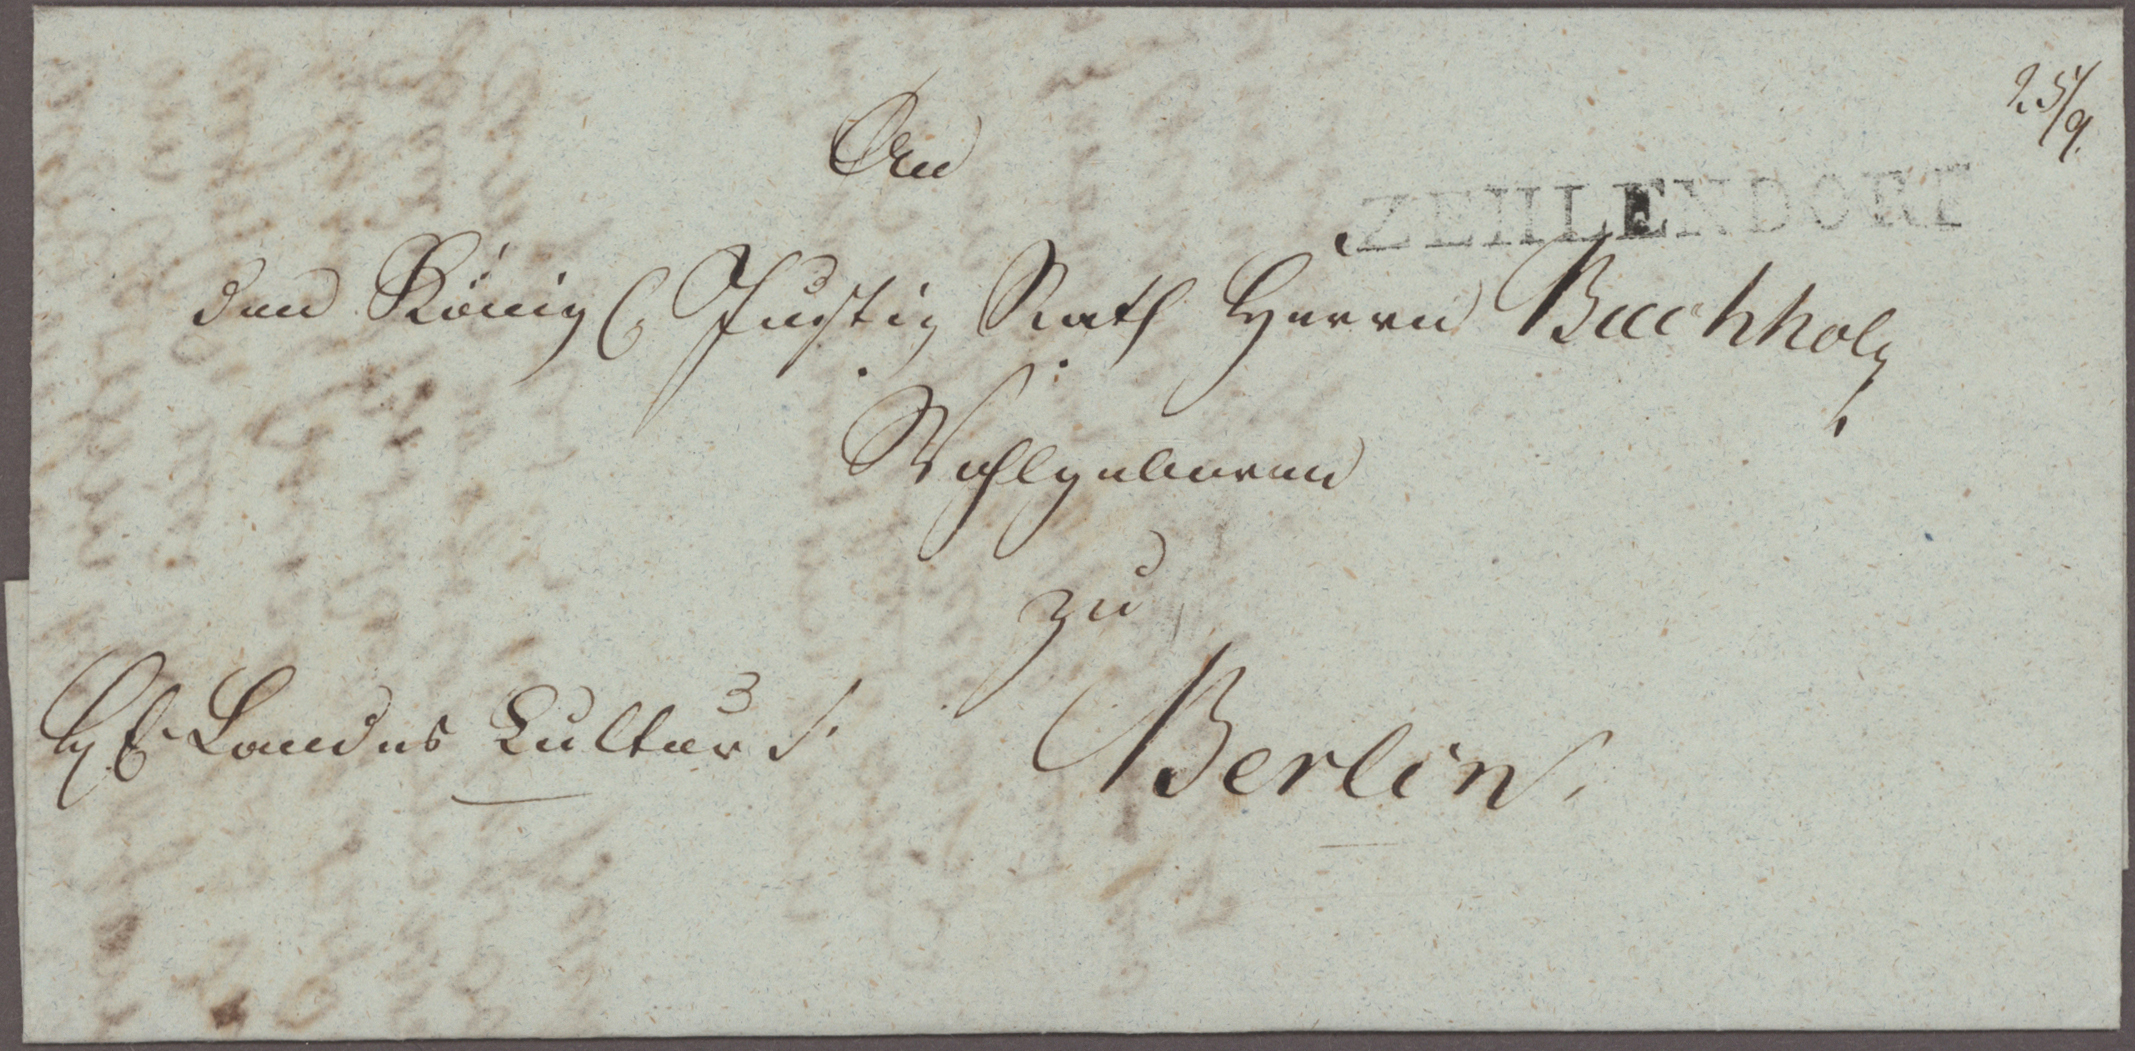 25/9.
An
ZEHLENDORF
den Königl Justiz Rath Herrn Buchholz
Wohlgeboren
zu
Landes Cultur S.
Berlin.